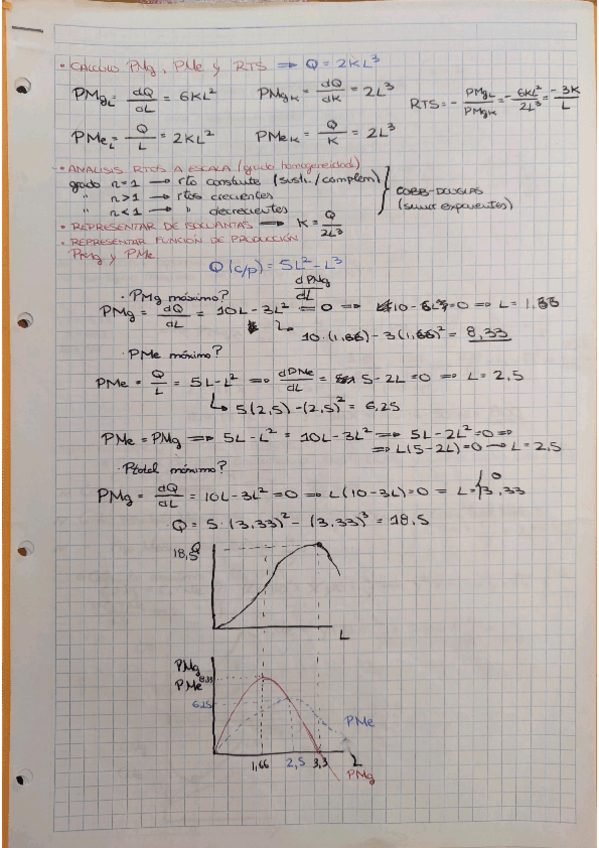 • CALCULO PMg, PMe y RTS ⟹ Q = 2KL³
PMgL = dQ/dL = 6KL²   PMgK = dQ/dK = 2L³   RTS = - PMgL/PMgK = -6KL²/2L³ = -3K/L
PMeL = Q/L = 2KL²   PMeK = Q/K = 2L³
• ANALISIS RTOS A ESCALA (grado homogeneidad)
grado n=1 → rto constante (sustit./complem)
" n>1 → rtos crecientes
" n<1 → " decrecientes
COBB-DOUGLAS
(sumar exponentes)
• REPRESENTAR DE ISOCUANTAS → K = Q/2L³
• REPRESENTAR FUNCIÓN DE PRODUCCIÓN
PMg y PMe
Q(c/p) = 5L² - L³
· PMg máximo?   dPMg/dL
PMg = dQ/dL = 10L - 3L² = 0 ⟹ 10 - 6L = 0 ⟹ L = 1,66
10·(1,66) - 3(1,66)² = 8,33
· PMe máximo?
PMe = Q/L = 5L - L² ⟹ dPMe/dL = 5 - 2L = 0 ⟹ L = 2,5
5(2,5) - (2,5)² = 6,25
PMe = PMg ⟹ 5L - L² = 10L - 3L² ⟹ 5L - 2L² = 0 ⟹
⟹ L(5 - 2L) = 0 → L = 2,5
· Ptotal máximo?
PMg = dQ/dL = 10L - 3L² = 0 ⟹ L(10 - 3L) = 0 = L = { 0 3,33
Q = 5·(3,33)² - (3,33)³ = 18,5
Q
18,5
L
PMg
PMe
8,33
6,25
PMe
1,66 2,5 3,3 L
PMg